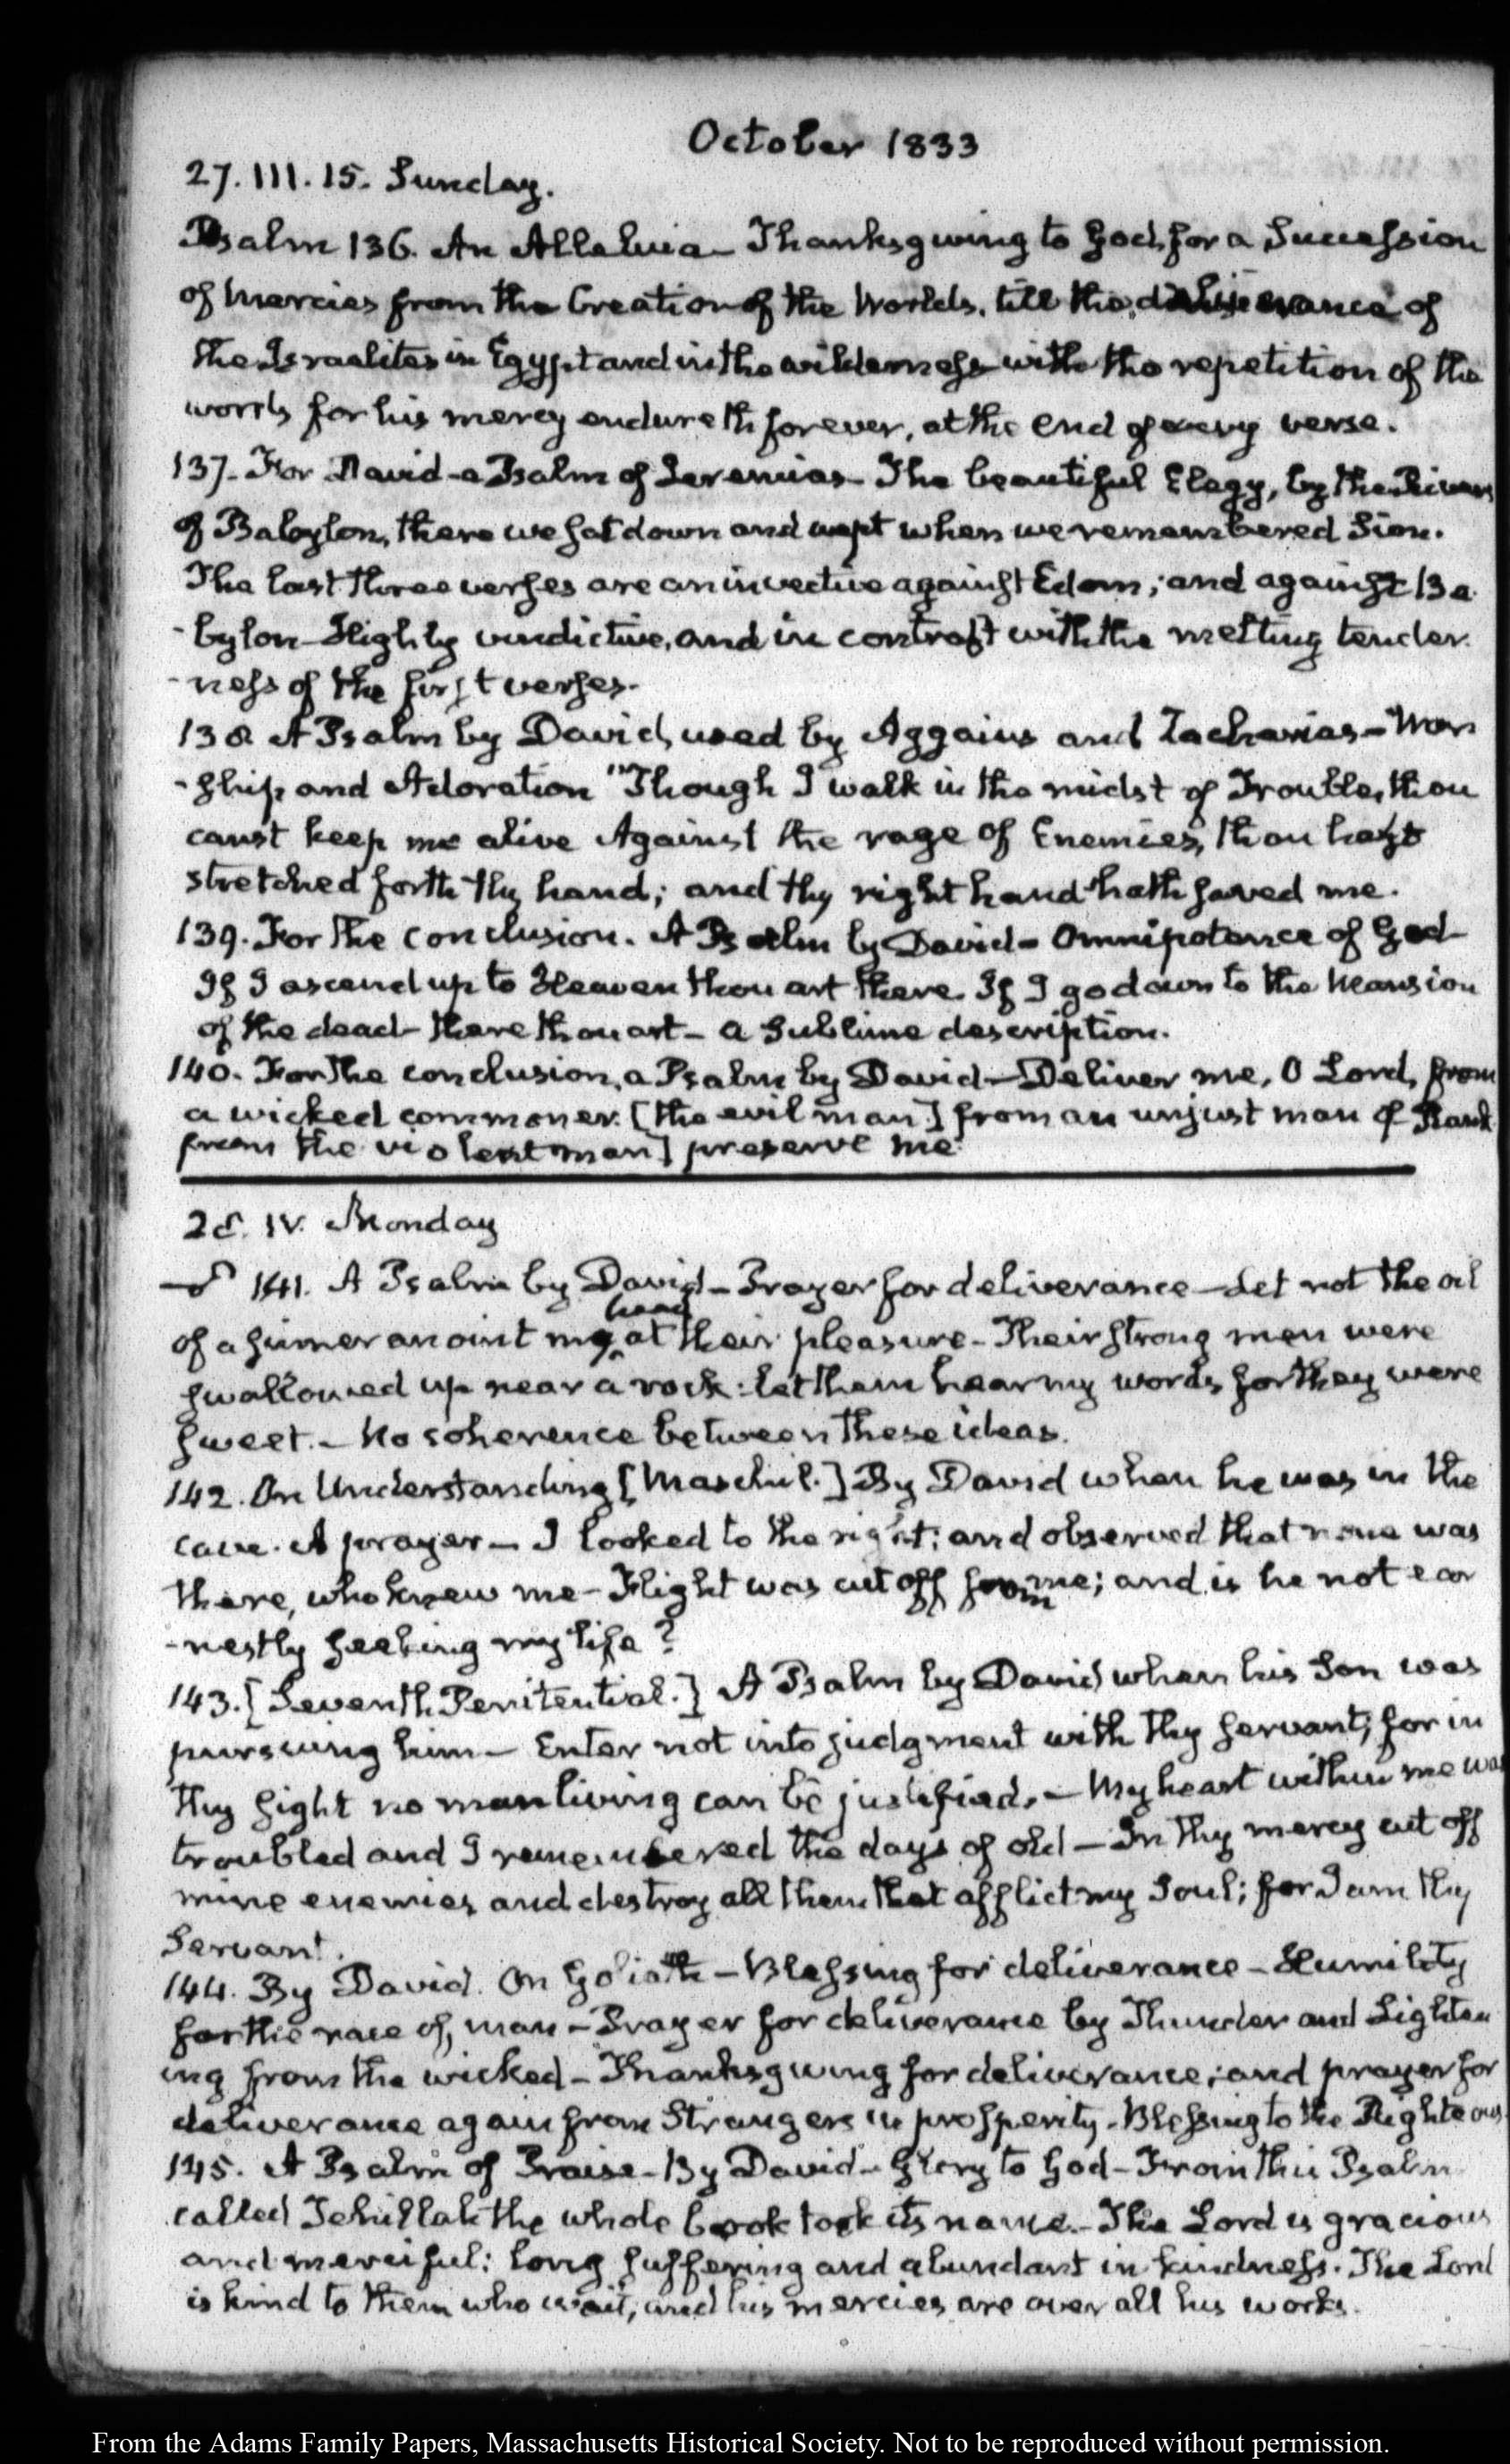 October 1833
27. III. 15. Sunday.
Psalm 136. An Alleluia — Thanksgiving to God, for a Succession
of Mercies from the Creation of the Worlds, till the deliverance of
the Israelites in Egypt and in the wilderness with the repetition of the
words for his mercy endureth forever, at the end of every verse.
137. For David - a Psalm of Jeremias - The beautiful Elegy, by the Rivers
of Babylon, there we sat down and wept when we remembered Sion.
The last three verses are an invective against Edom; and against Ba
-bylon - Highly vindictive, and in contrast with the melting tender
-ness of the first verses.
138 A Psalm by David, used by Aggaius and Zacharias - Wor
-ship and Adoration "Though I walk in the midst of Trouble, thou
canst keep me alive Against the rage of Enemies, thou hast
stretched forth thy hand; and thy right hand hath saved me.
139. For the conclusion. A Psalm by David - Omnipotence of God -
If I ascend up to Heaven thou art there. If I go down to the Mansion
of the dead - there thou art - a sublime description.
140. For the conclusion, a Psalm by David - Deliver me, O Lord, from
a wicked commoner. [the evil man] from an unjust man of Rank
from the violent man] preserve me.
28. IV. Monday
141. A Psalm by David - Prayer for deliverance - Let not the oil
of a sinner anoint my head at their pleasure - Their strong men were
swallowed up near a rock: let them hear my words for they were
sweet. - No coherence between these ideas.
142. On Understanding [Maschil.] By David when he was in the
cave. A prayer - I looked to the right: and observed that none was
there, who knew me - Flight was cut off from me; and is he not ear
-nestly seeking my life?
143. [Seventh Penitential.] A Psalm by David when his Son was
pursuing him - Enter not into judgment with thy servant; for in
thy sight no man living can be justified. - My heart within me was
troubled and I remembered the days of old - In thy mercy cut off
mine enemies and destroy all them that afflict my Soul; for I am thy
Servant.
144. By David. On Goliath - Blessing for deliverance - Humility
for the race of man - Prayer for deliverance by Thunder and Lighten
ing from the wicked - Thanksgiving for deliverance; and prayer for
deliverance again from Strangers in prosperity. Blessing to the Righteous
145. A Psalm of Praise - By David - Glory to God - From this Psalm
called Tehillah the whole book took its name. - The Lord is gracious
and merciful: long suffering and abundant in kindness. The Lord
is kind to them who wait, and his mercies are over all his works.
From the Adams Family Papers, Massachusetts Historical Society. Not to be reproduced without permission.